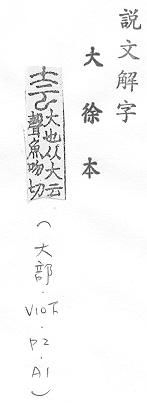 説文解字
大徐本
夽
大也从大云
聲魚吻切
(大部.V10下.P2.A1)